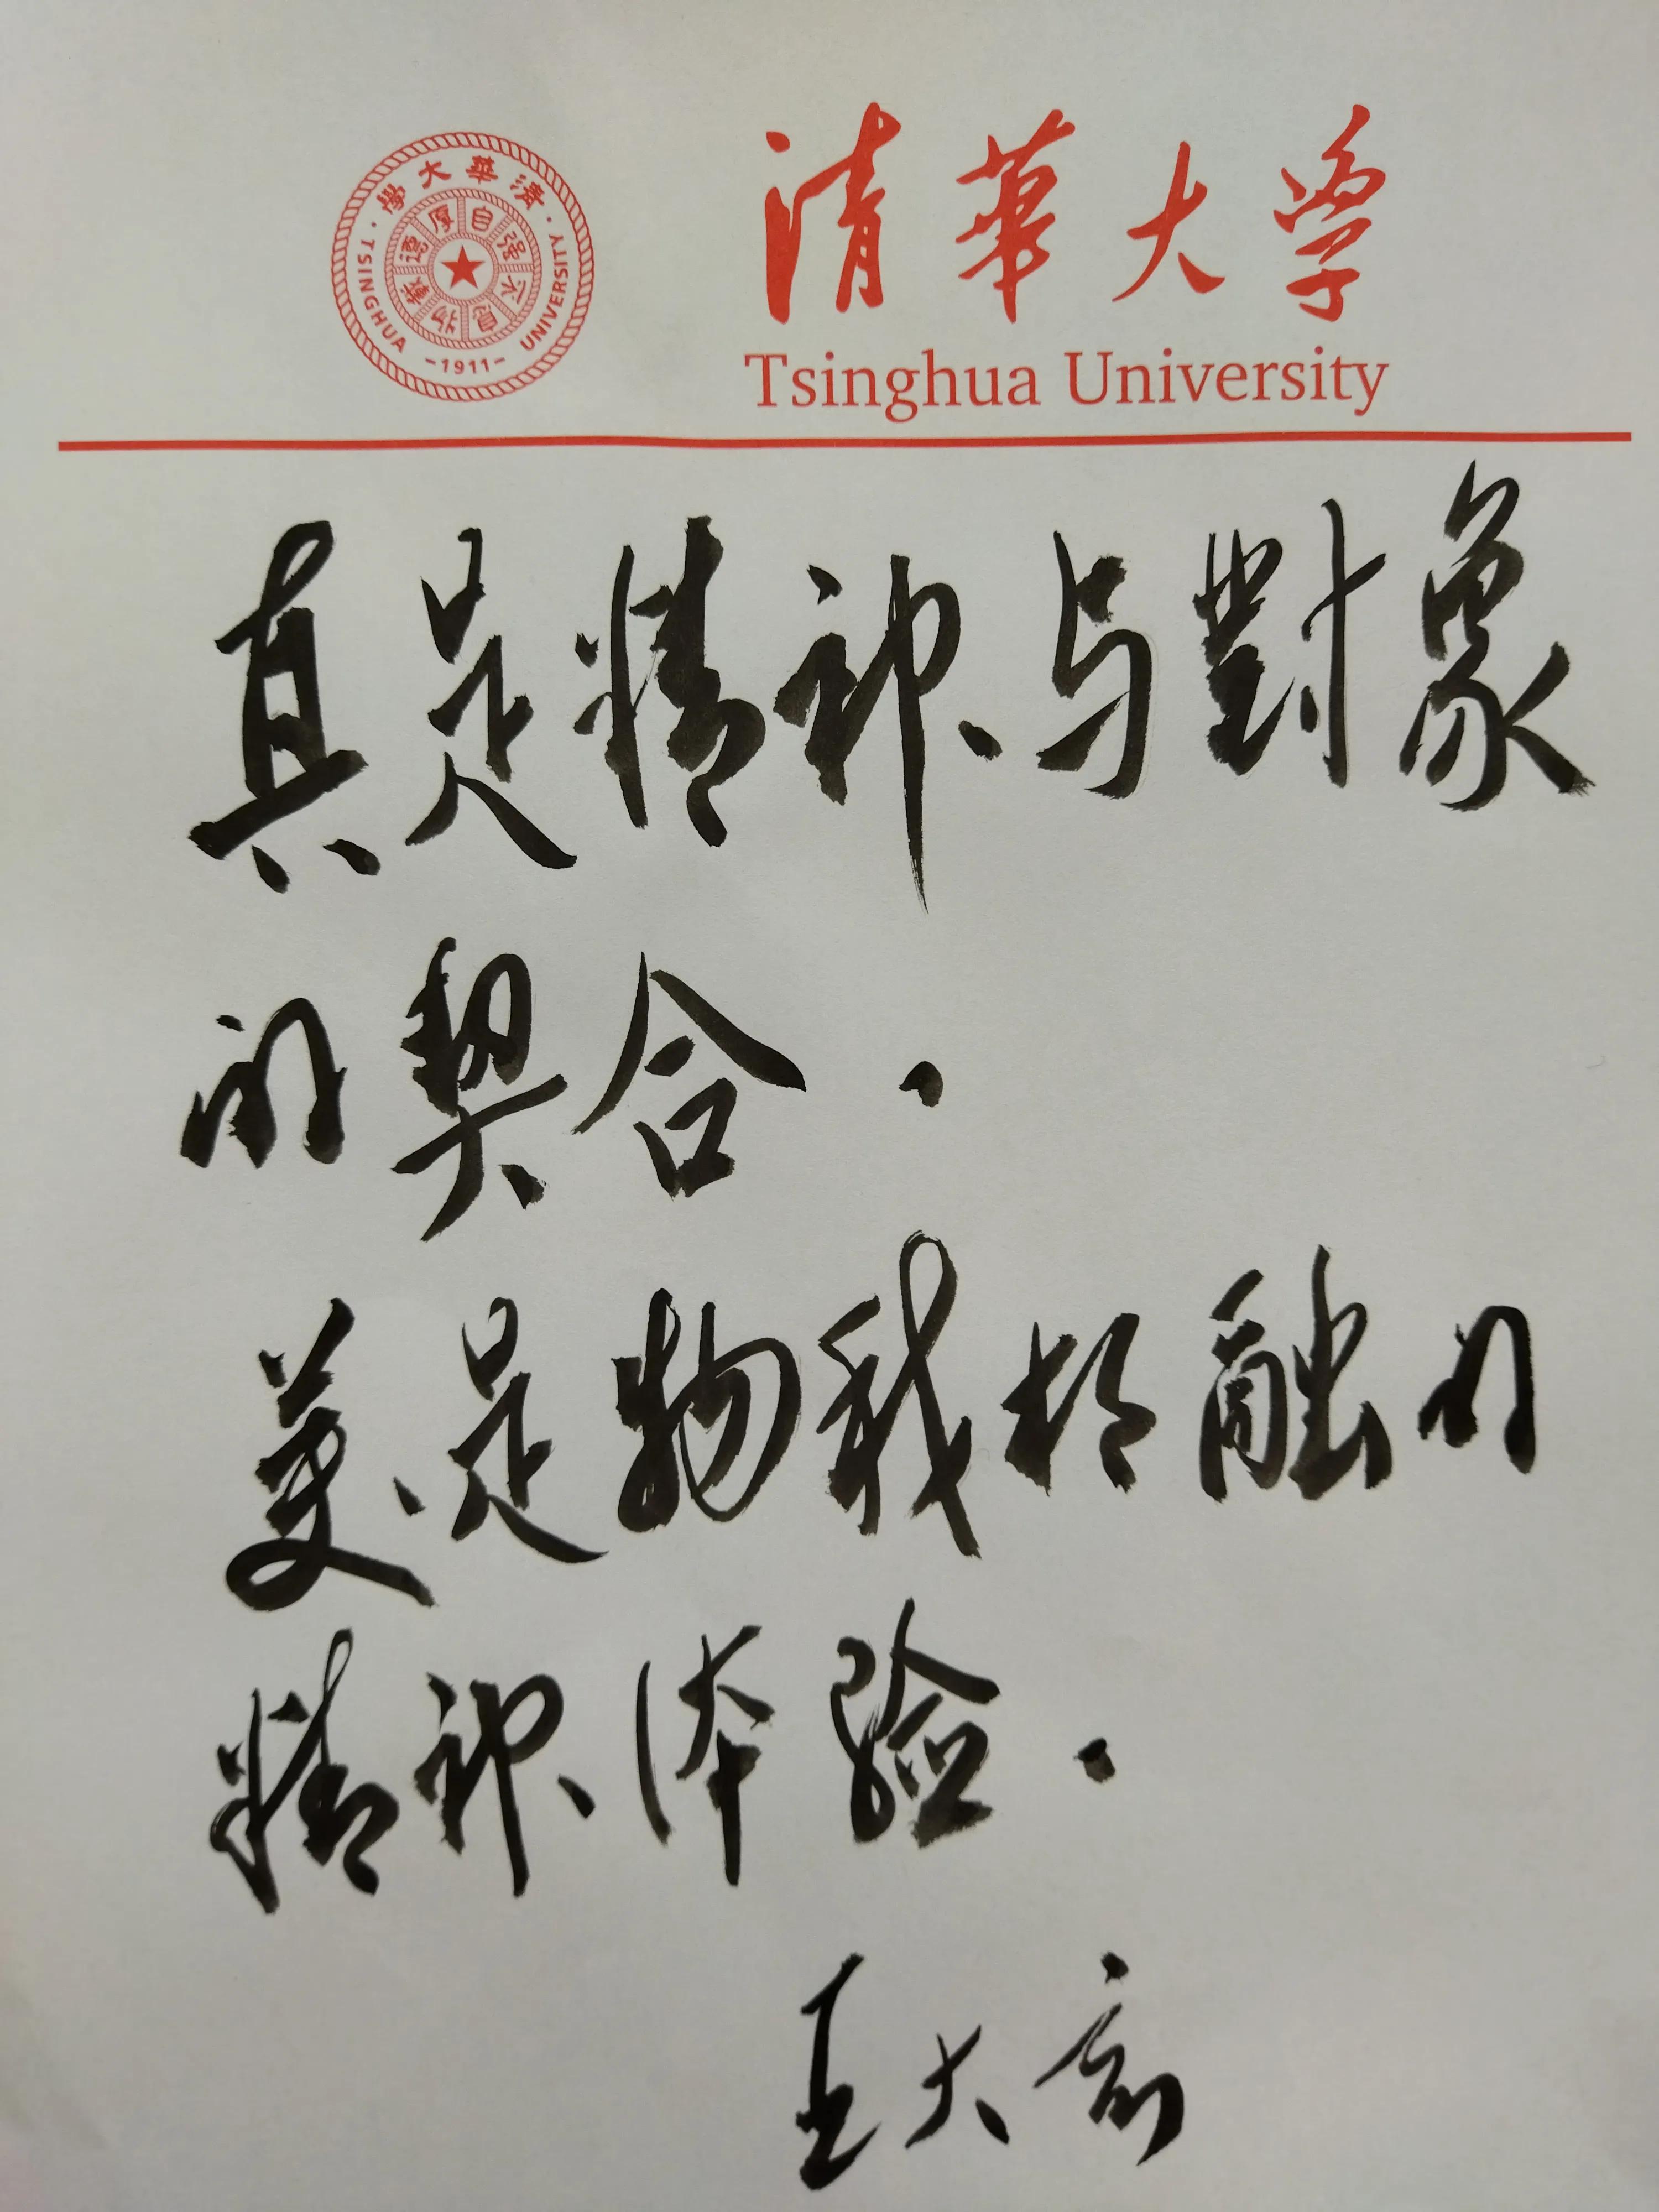 清華大學
自强不息
厚德載物
TSINGHUA UNIVERSITY
-1911-
清華大学
Tsinghua University
真是精神与對象
的契合.
美是物我相融的
精神体验.
王大